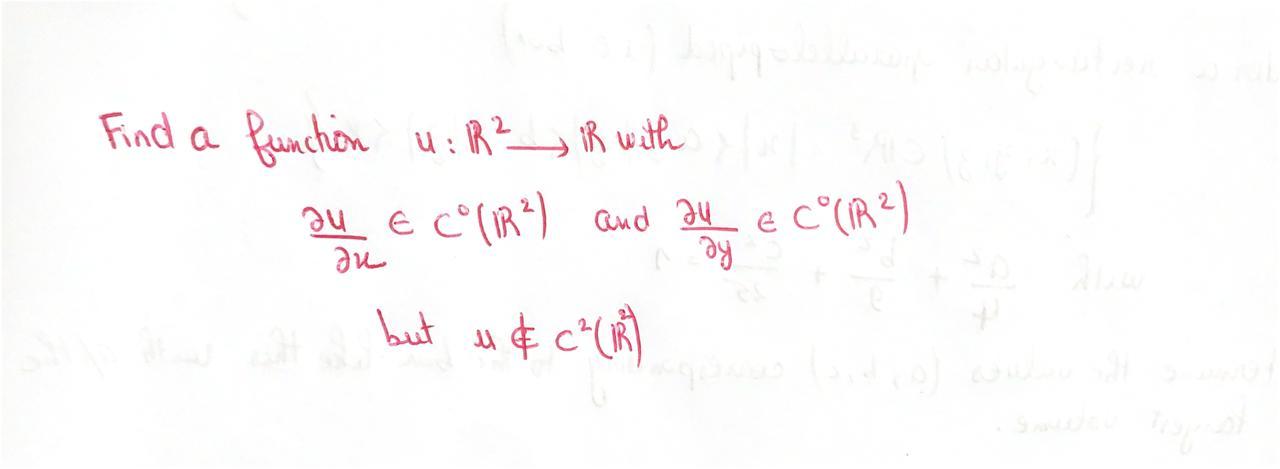 Find a function u : ℝ² → ℝ with
∂u/∂x ∈ C⁰(ℝ²) and ∂u/∂y ∈ C⁰(ℝ²)
but u ∉ C²(ℝ²)